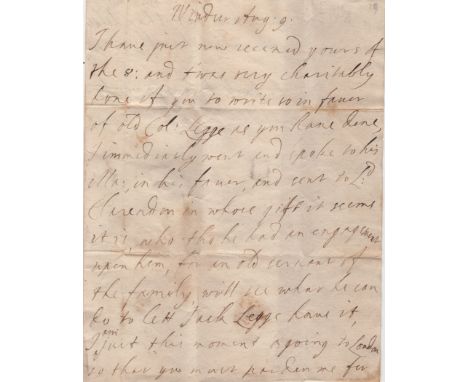 Windsor Aug: 9.
I have just now receued yours of
the 8: and t'was very charitably
done of you to write to in fauer
of old Col: Legge as you haue done,
I immediatly went and spoke to his
Ma: in his fauer, and sent to Ld
Clarendon in whose gift it seems
it is, who tho he had an engagement
upon him, for an old seruant of
the family, will see what he can
do to lett Jack Legge haue it,
I am just this moment a going to London
so that you must pardon me for